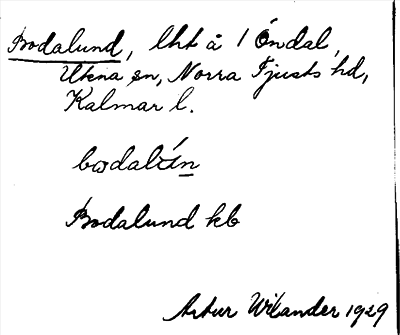 Bodalund, lht å 1 Öndal,
Ukna sn, Norra Tjusts hd,
Kalmar l.
bodalún
Bodalund kb
Artur Wilander 1929